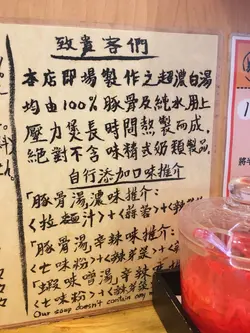 致貴客們
本店即場製作之超濃白湯
均由100%豚骨及純水用上
壓力煲長時間熬製而成,
絕對不含味精或奶類製品
自行添加口味推介
「豚骨湯濃味推介:
<拉麵汁>+<蒜蓉>+<辣
「豚骨湯辛辣味推介:
<七味粉>+<辣芽菜>+
「蝦味噌湯辛辣味
<七味粉>+<辣芽菜
Our soup doesn't contain any